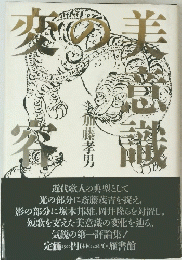 美意識
の
変容
加藤孝男
近代歌人の典型として
光の部分に斎藤茂吉を捉え、
影の部分に堀本邦雄、岡井隆らを対置し、
短歌を支えた美意識の変化を辿る。
気鋭の第一評論集！
雁書館